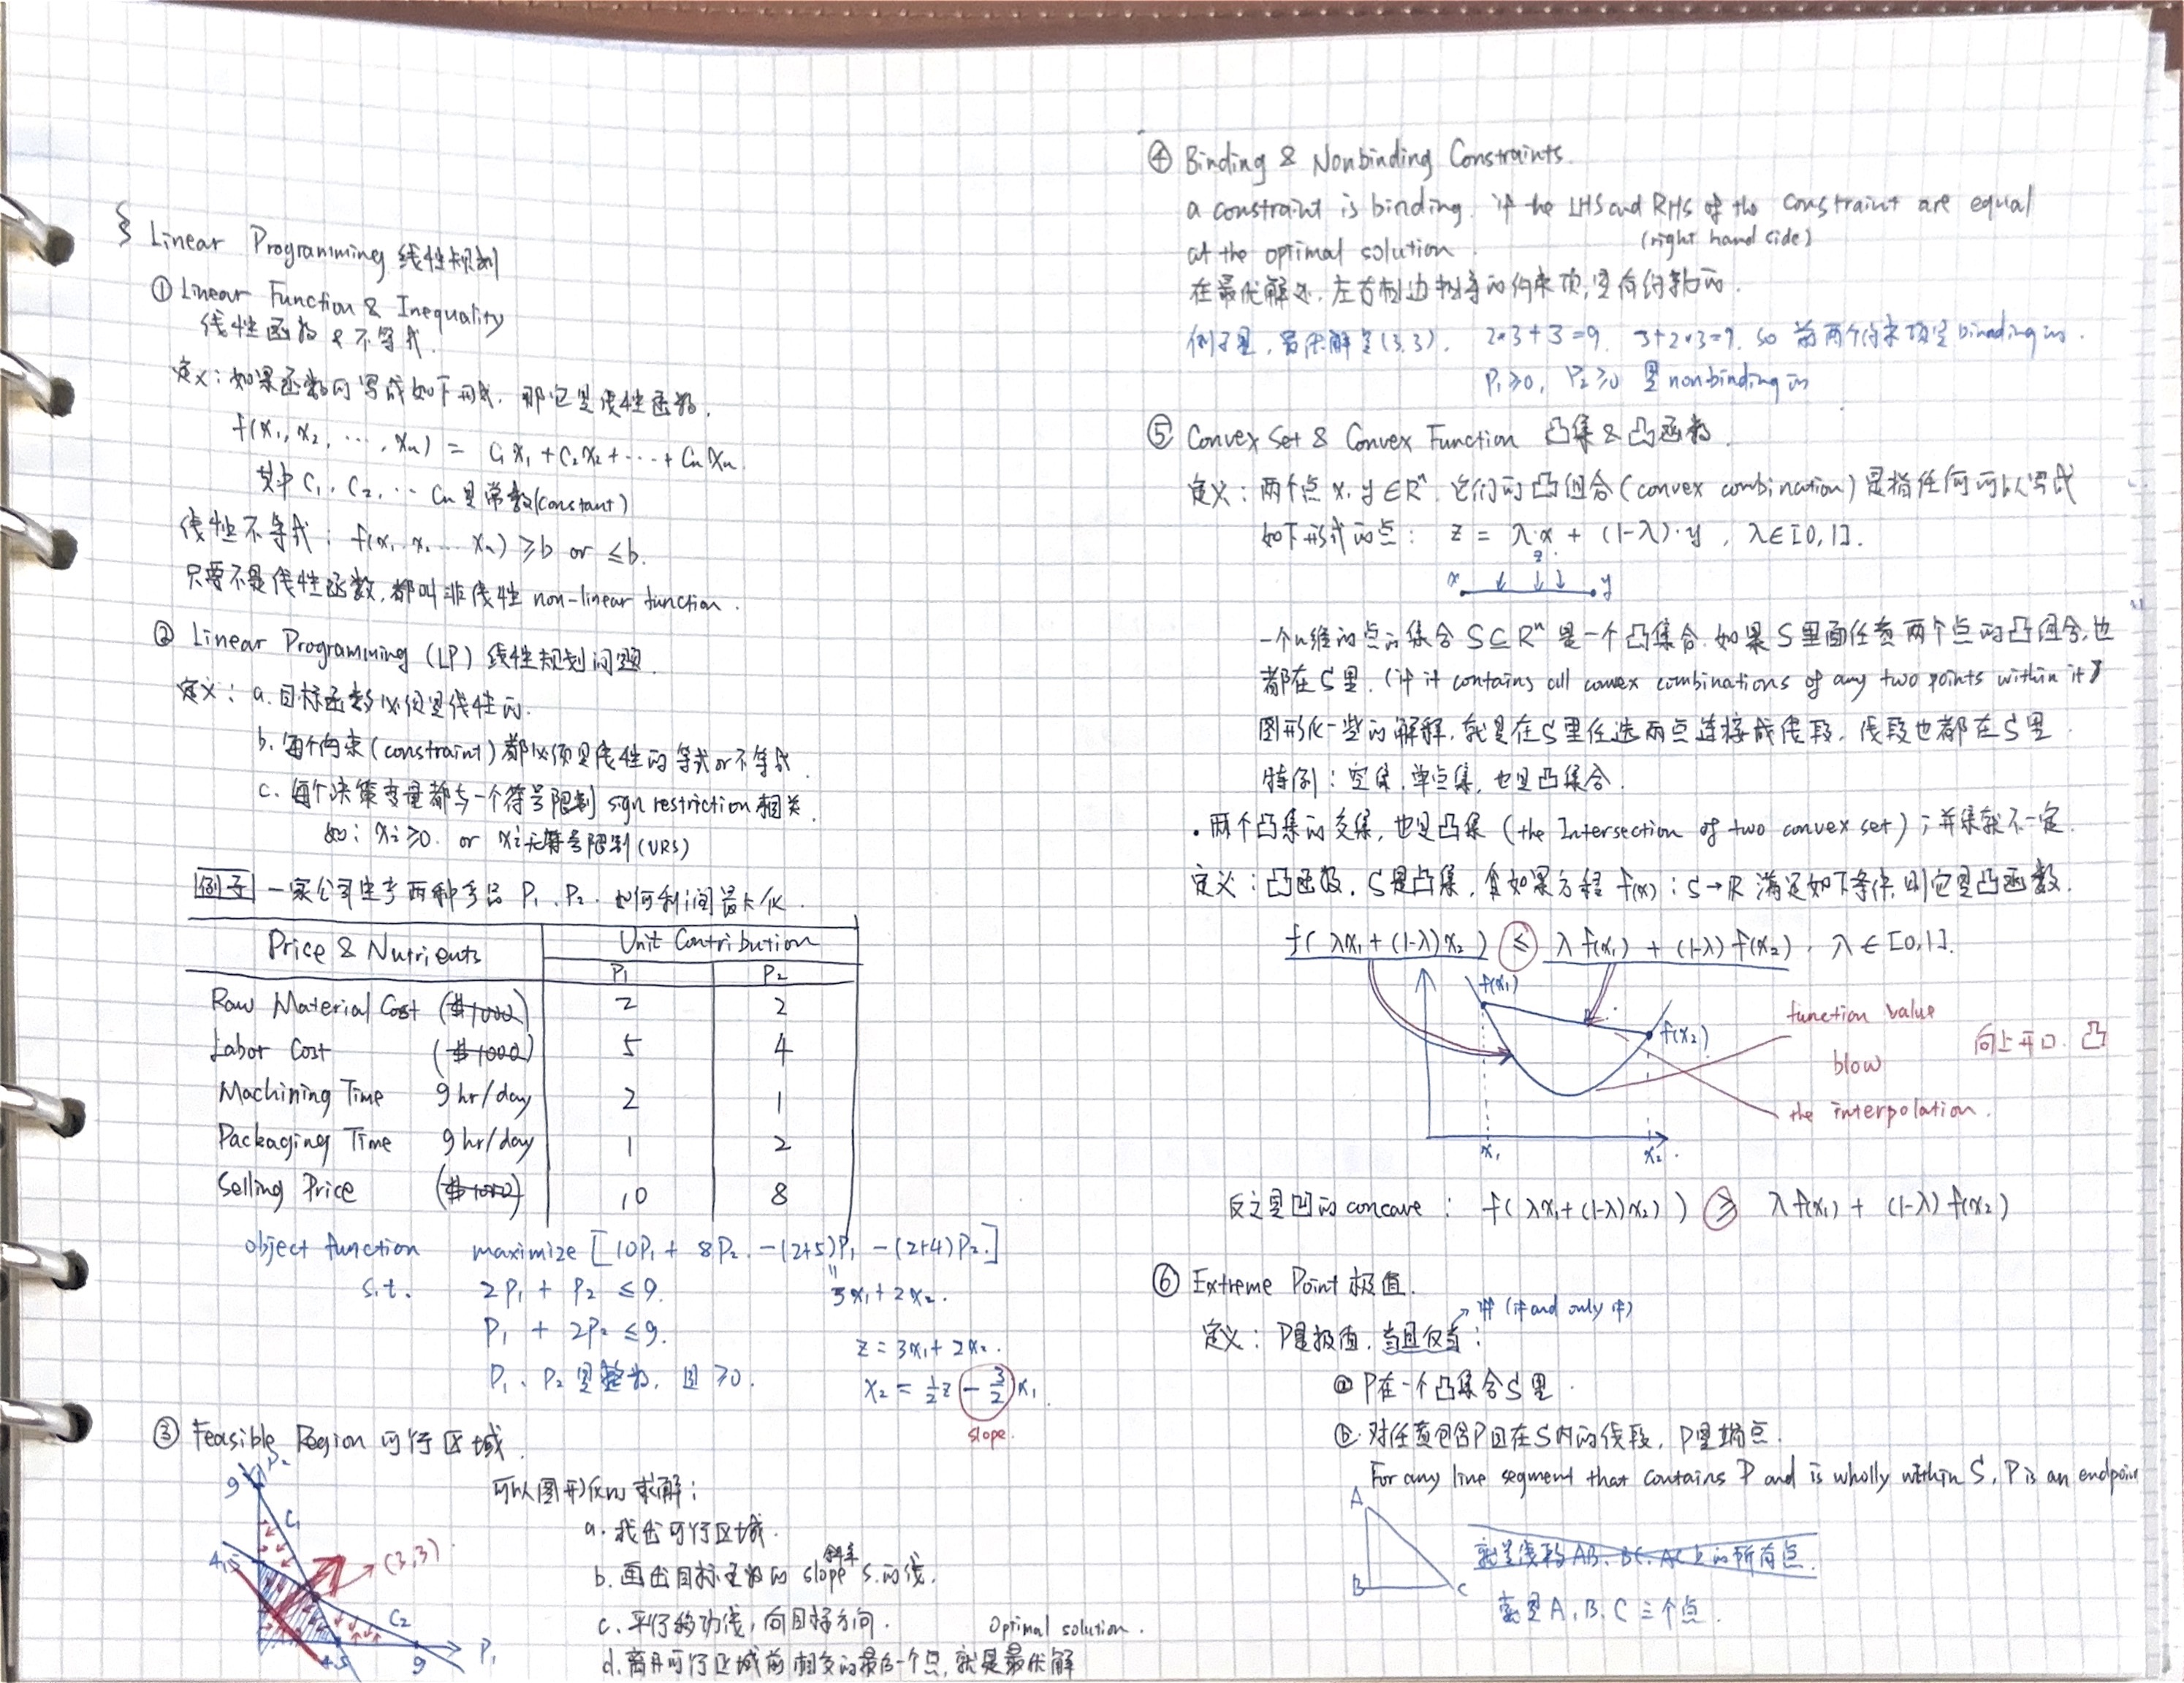 § Linear Programming 线性规划
① Linear Function & Inequality
线性函数 & 不等式.
定义: 如果函数可写成如下形式, 那它是线性函数.
f(x₁, x₂, ···, xₙ) = c₁x₁ + c₂x₂ + ··· + cₙxₙ.
其中 c₁, c₂, ··· cₙ 是常数(constant)
线性不等式: f(x₁, x₂ ... xₙ) ≥b or ≤b.
只要不是线性函数, 都叫非线性 non-linear function.
② Linear Programming (LP) 线性规划问题.
定义: a. 目标函数必须是线性的.
b. 每个约束(constraint)都必须是线性的等式or不等式.
c. 每个决策变量都与一个符号限制 sign restriction 相关.
如: xᵢ≥0. or xᵢ无符号限制(URS)
例子 一家公司生产两种产品 P₁、P₂. 如何利润最大化.
Price & Nutrients Unit Contribution
P₁ P₂
Raw Material Cost ($1000) 2 2
Labor Cost ($1000) 5 4
Machining Time 9hr/day 2 1
Packaging Time 9hr/day 1 2
Selling Price ($1000) 10 8
object function maximize [10P₁ + 8P₂ -(2+5)P₁ -(2+4)P₂.]
s.t. 2P₁ + P₂ ≤9. 3x₁+2x₂.
P₁ + 2P₂ ≤9.
z = 3x₁+2x₂.
P₁、P₂是整数, 且≥0.
x₂ = ½z - 3/2 x₁
slope.
③ Feasible Region 可行区域.
P₂
9
C₁
4.5
(3,3)
C₂
4.5
9
P₁
可以图形化的求解:
a. 找出可行区域.
斜率
b. 画出目标函数的 slope s.的线.
c. 平行移动线, 向目标方向.
Optimal solution.
d. 离开可行区域前相交的最后一个点, 就是最优解
④ Binding & Nonbinding Constraints.
a constraint is binding. if the LHS and RHS of the constraint are equal
(right hand side)
at the optimal solution.
在最优解处, 左右两边相等的约束项, 是有约束的.
例子里, 最优解是(3,3). 2*3+3=9. 3+2*3=9. so 前两个约束项是binading的.
P₁≥0, P₂≥0 是nonbinding的
⑤ Convex Set & Convex Function 凸集 & 凸函数.
定义: 两个点 x, y∈Rⁿ. 它们的凸组合(convex combination)是指任何可以写成
如下形式的点: z = λ·x + (1-λ)·y, λ∈[0,1].
z
x y
一个n维的点的集合 S⊆Rⁿ 是一个凸集合. 如果S里面任意两个点的凸组合, 也
都在S里. (if it contains all convex combinations of any two points within it)
图形化一些的解释, 就是在S里任选两点连接成线段, 线段也都在S里.
特例: 空集, 单点集, 也是凸集合.
• 两个凸集的交集, 也是凸集 (the Intersection of two convex set); 并集就不一定.
定义: 凸函数. S是凸集, 如果方程 f(x): S→R 满足如下条件, 则它是凸函数.
f( λx₁ + (1-λ)x₂ ) ≤ λf(x₁) + (1-λ)f(x₂), λ∈[0,1].
f(x₁)
f(x₂)
x₁ x₂
function value
blow
the interpolation.
向上开口. 凸
反之是凹的 concave: f( λx₁+(1-λ)x₂) ) ≥ λf(x₁) + (1-λ)f(x₂)
⑥ Extreme Point 极值.
iff (if and only if)
定义: P是极值, 当且仅当:
ⓐ P在一个凸集合S里.
ⓑ 对任意包含P且在S内的线段, P是端点.
For any line segment that contains P and is wholly within S, P is an endpoint
A
B
C
就是线段AB、BC、AC上的所有点.
就是A、B、C三个点.